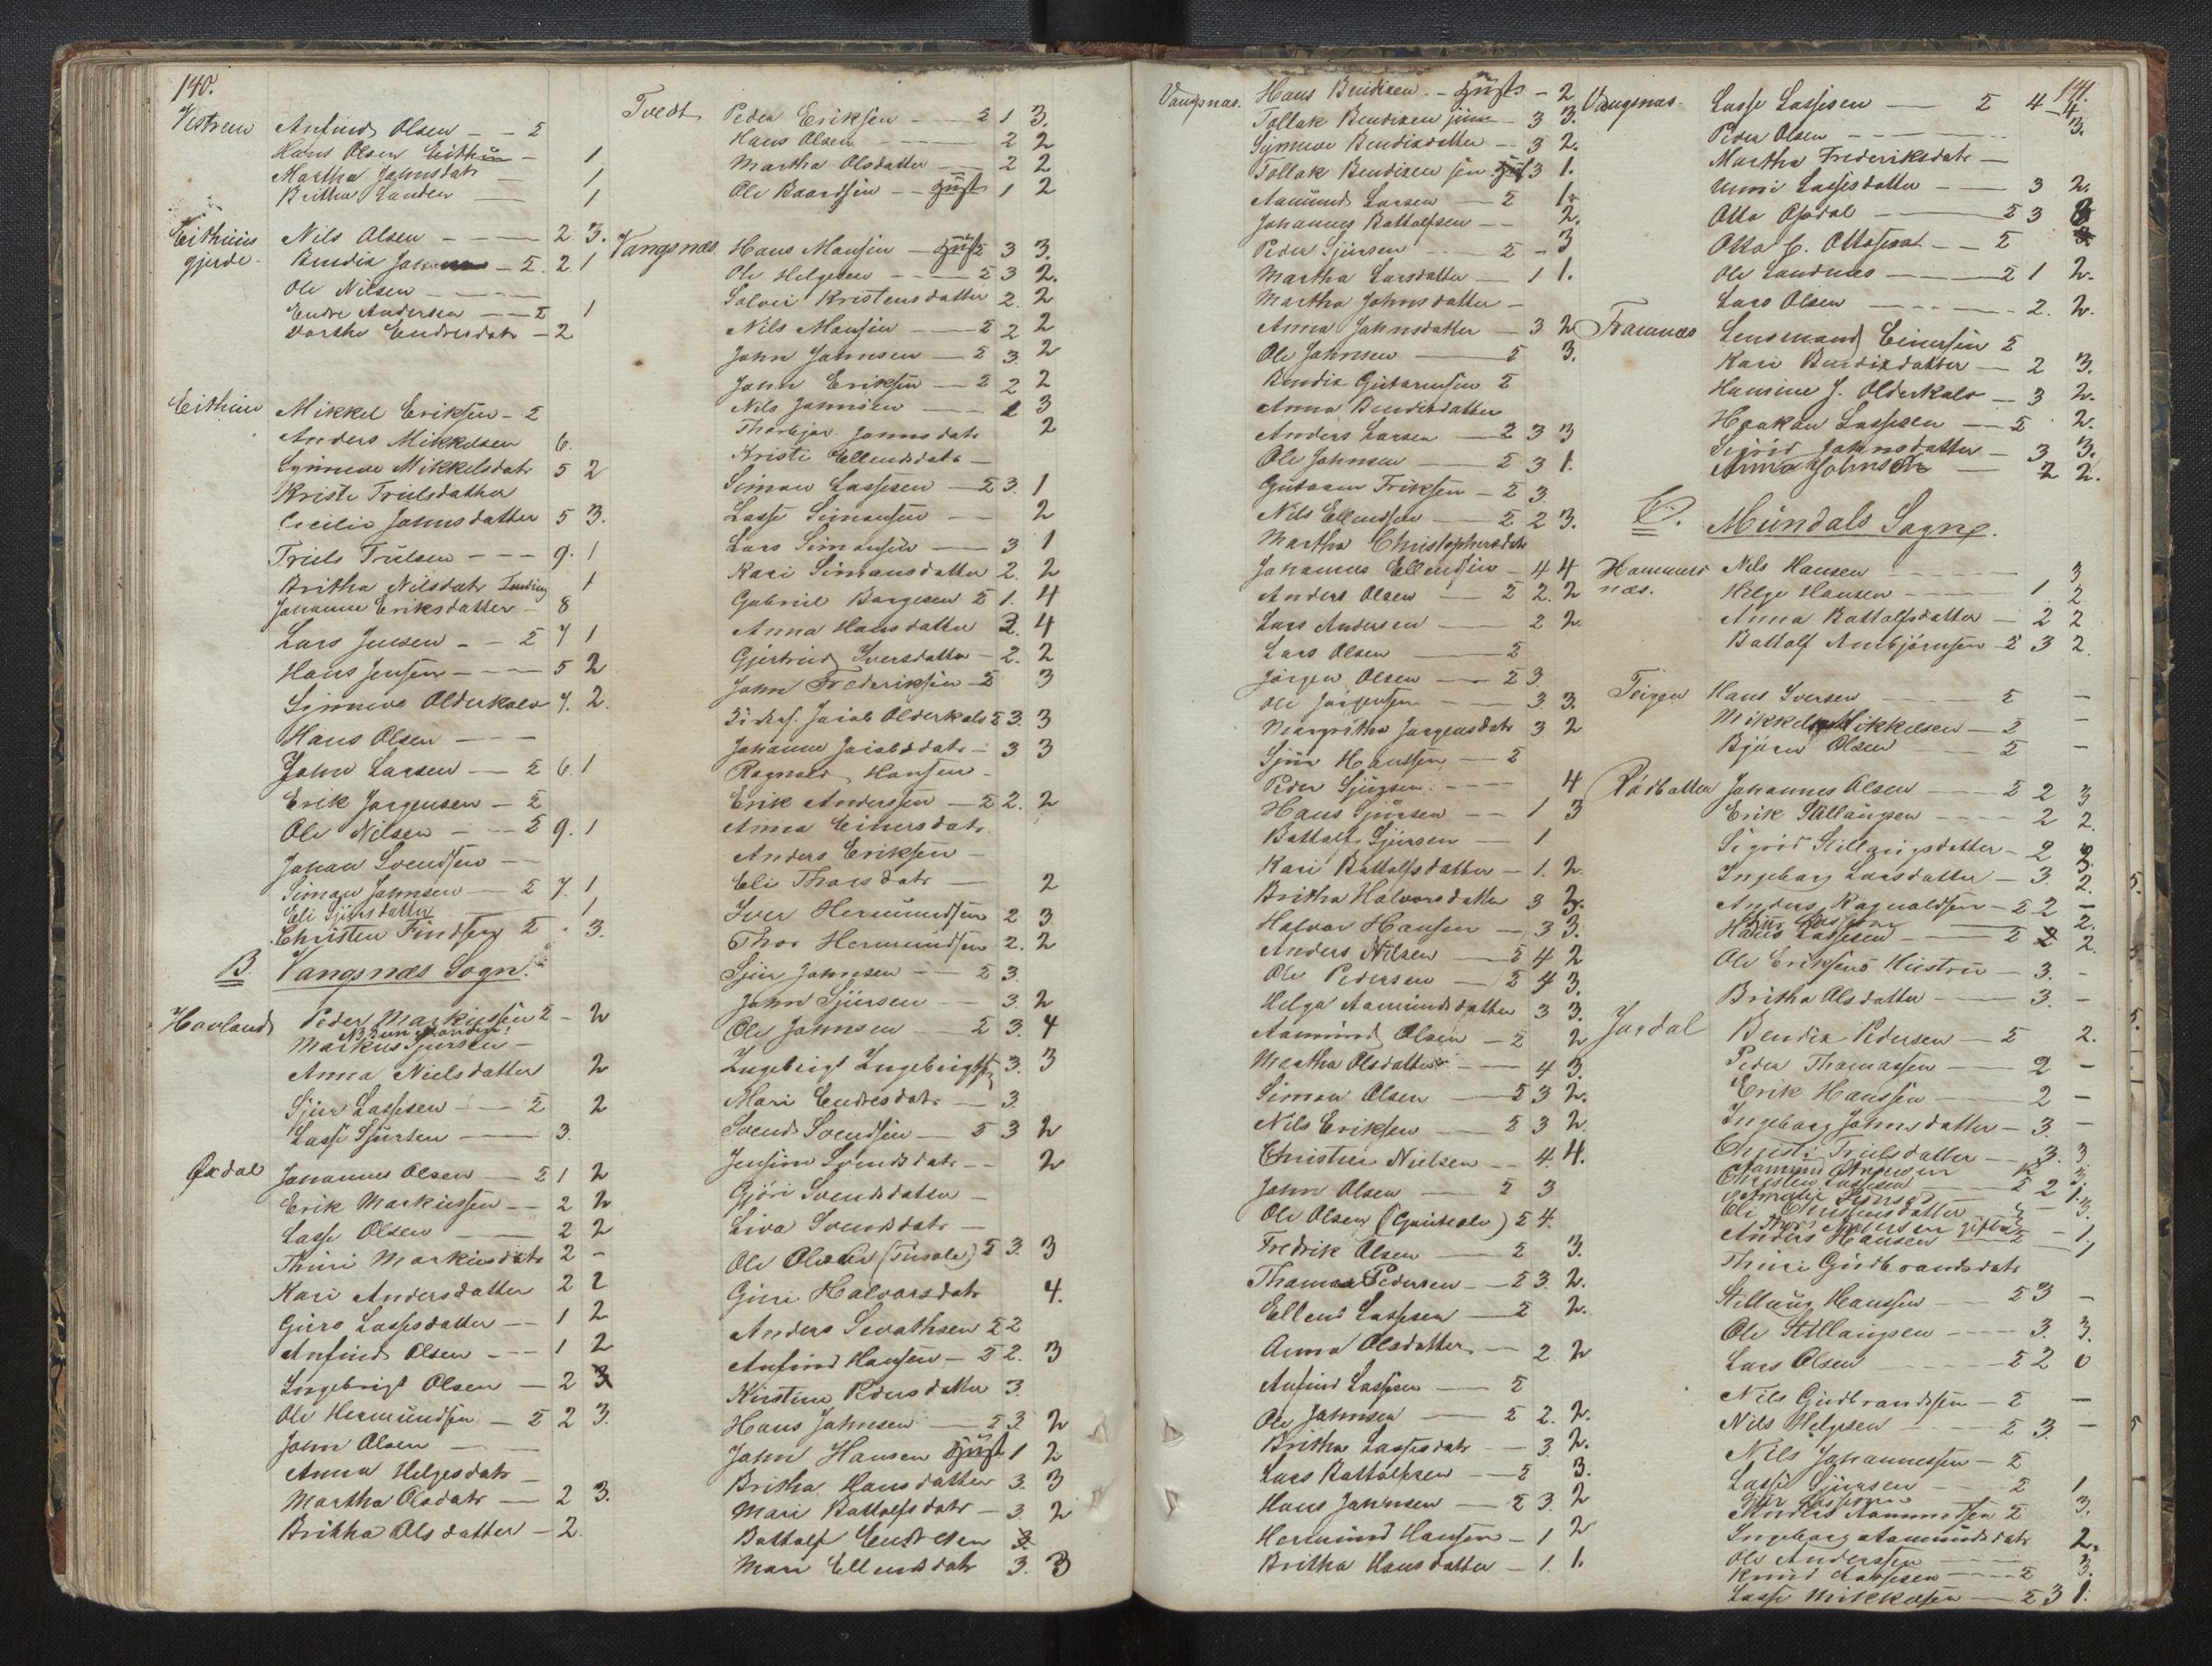 140.
Vestrem Anfind Olsen - - 2
Hans Olsen Eithun - 1
Martha Johnsdatr - 1
Brithe Landen - 1
Eithuns Nils Olsen - - - 2 3.
gjerde. Bendix - 2. 2 1
Ole Nilsen - - -
Endre Andersen - - 2 1
Dorthe Endresdatr - 2
Eithun Mikkel Eriksen - 2
Anders Mikkelsen 6.
Synneve Mikkelsdatr 5 2
Kristi Trulsdatter
Cecilie Johnsdatter 5 3.
Truls Trulsen - - - 9. 1
Britha Nilsdatr 1
Johanne Eriksdatter - 8
Lars Jensen - - 2 7 1
Hans Jensen - - - 5 2
Synneve Olderkalv 7. 2.
Hans Olsen - - -
John Larsen - 2 6. 1
Erik Jørgensen - 2
Ole Nilsen - - 2 9. 1
Johan Svendsen - -
Simon Johnsen - 2 7. 1
Eli Sjursdatter 1
Christen Findsen 2 - 3.
B. Vangsnæs Sogn.
Hovland Peder Markussen 2 - 2
Markus Sjursen -
Anna Nielsdatter 2
Sjur Lassesen - - 2 2
Lasse Sjursen - 3.
Øxdal Johannes Olsen - 2 1 2
Erik Markussen - - 2 2
Lasse Olsen - - 2 2
Thuri Markusdatr 2 -
Kari Andersdatter 2 2
Guro Lassesdatter - - 1 2
Anfind Olsen - - - 1 2
Ingebrigt Olsen - 2 3
Ole Hermundsen - 2 2 3.
John Olsen - -
Anna Helgesdatr -
Martha Olsdatr - 2 3.
Britha Olsdatter - 2.
Tvedt Peder Eriksen - - 2 1 3.
Hans Olsen - - 2 2
Martha Olsdatter - - 2 2
Ole Baardsen - - 1 2
Vangsnæs Hans Monsen - 2 3 3.
Ole Helgesen - - - 2 3 2.
Solvei Kristensdatter 2. 2
Nils Monsen - - 2 2 2
John Johnsen - 2 3. 2
John Eriksen - 2 2 2
Nils Johnsen - - 2 3
Thorbjør Johnsdatr 2
Kristi Ellendsdatr -
Simon Lassesen - 2 3. 1
Lasse Simonsen - - 2
Lars Simonsen - 3 1
Kari Simonsdatter 2. 2
Gabriel Børgesen 2 1. 4
Anna Hansdatter 3. 4
Gjertrud Iversdatter - 2. 2
John Frederiksen - 2 3
Jacob Olderkalv 2 3. 3
Johanne Jacobsdatr - 3 3
Ragnald Hansen -
Erik Andersen - 2 2. 2
Anna Einersdatr
Anders Eriksen -
Eli Thorsdatr - 2
Iver Hermundsen 2 3
Thor Hermundsen 2. 2
Sjur Johnsen - - 2 3.
John Sjursen - 3. 2
Ole Johnsen - 2 3. 4
Ingebrigt Ingebrigtsen 3. 3
Mari Endresdatr - 3.
Svend Svendsen - 2 3 2
Jensine Svendsdatr - - 2
Gjøri Svendsdatter -
Liva Svendsdatr -
Ole Olsen 2 3. 3
Guri Halvorsdatr 4.
Anders Sevathsen 2 2
Anfind Hansen - 2 2. 3
Kirstine Pedersdatter 3.
Hans Johnsen - 2 3 2
John Hansen 1 2
Britha Hansdatter 3. 3
Mari Battolfsdatr - 3. 2
Battolf Endresen 3.
Mari Ellendsdatr 3. 3
141.
Vangsnæs. Hans Bendixen - - 2
Tollak Bendixen jun - 3 3.
Synneve Bendixdatter - 3 2.
Tollak Bendixen sen 3 1.
Aamund Larsen - 2 1.
Johannes Battolfsen - - 2.
Peder Sjursen - - 2 - 3
Martha Larsdatter - 1 1.
Martha Johnsdatter -
Anna Johnsdatter - 3 2
Ole Johnsen - 2 3.
Bendix Guttormsen 2
Anna Bendixdatter
Anders Larsen - 2 3 3
Ole Johnsen - 2 3 1.
Guttorm Eriksen - 2 3.
Nils Ellendsen - 2 2 3.
Martha Christophersdatr
Johannes Ellendsen - 4 4
Anders Olsen - 2 2. 2
Lars Andersen - 2 2.
Lars Olsen - 2
Jørgen Olsen - 2 3
Ole Jørgensen - - 3 3.
Margritha Jørgensdatr 3 2
Sjur Hanssen - 2
Peder Sjursen - - 4
Hans Sjursen - - 1 3
Battolf Sjursen - 1
Kari Battolfsdatter - 1. 2.
Britha Halvorsdatter 3 2.
Halvor Hansen - 3 3.
Anders Nilsen - 2 4 2
Ole Pedersen - 2 4 3.
Helga Aamundsdatter 3 3.
Aamund Olsen - 2 2
Martha Olsdatter - 4 3.
Simon Olsen - 2 3 2.
Nils Eriksen - 2 3 2.
Christen Nielsen - - 4. 4.
John Olsen - 2 3
Ole Olsen 2 4.
Fredrik Olsen - 2 3.
Thomas Pedersen - 2 3. 2.
Ellend Lassesen - 2 2.
Anna Olsdatter - 2 2
Anfind Lassesen - 2
Ole Johnsen - 2 2. 2.
Britha Lassesdatr - 3. 2.
Lars Battolfsen - 2 3.
Hans Johnsen - 2 3. 2
Hermund Hansen - 1 2
Britha Hansdatter - 1. 1.
Vangsnæs. Lasse Lassesen - 2 4 4
Peder Olsen - - - 3.
Martha Frederiksdatr -
Unni Lassesdatter - 3 2.
Otto Opdal - 2 3 3
Otto C. Ottosen - - 2
Ole Landmes - 2 1 2.
Lars Olsen - - 2. 2.
Framnæs Lensmand Einersen 2
Kari Bendixdatter - 2 3.
Hansine J. Olderkalv - 3 2.
Haakon Lassesen - 2 2.
Sigrid Johnsdatter - 3 3.
Anna Johnsdtr - 2 2.
C. Mundals Sogn.
Hammers Nils Hansen - - 3
næs. Helge Hansen - - 1 2
Anna Battolfsdatter - 2 2
Battolf Anbjørnsen 2 3 2.
Teigen Hans Iversen - 2 -
Mikkel Mikkelsen - 2 -
Bjørn Olsen 2 -
Rødbotten Johannes Olsen - 2 2 3
Erik Stillaugsen - - 2 2.
Sigrid Stillaugsdatter - 2 3.
Ingeborg Larsdatter - 3. 2.
Anders Ragnvaldsen - 2 2 -
Hans Lassesen - 2 2 2.
Ole Eriksens Hustru - 3. -
Britha Olsdatter - 3. -
Jordal Bendix Pedersen - 2 2.
Peder Thomassen - 2 -
Erik Hanssen - 2 -
Ingeborg Johnsdatter - 3. -
Christi Trulsdatter - 3. 3
Christen Lassesen - 2 2 1.
Eli Christensdatter - 3.
Anders Hansen 2 - 1.
Thuri Gudbrandsdatr 1
Stillaug Hanssen - 2 3 -
Ole Stillaugsen - - 3. 3.
Lars Olsen - - 2 2 0
Nils Gudbrandsen - 2 -
Nils Helgesen - 2 3. -
Nils Johannessen - 2
Lasse Sjursen - 2 1
Anders Aamundsen 2 3.
Ingeborg Aamundsdatr 2.
Ole Andersen - 3.
Knud Lassesen - - 2
Lasse Mikkelsen - 2 3 1.